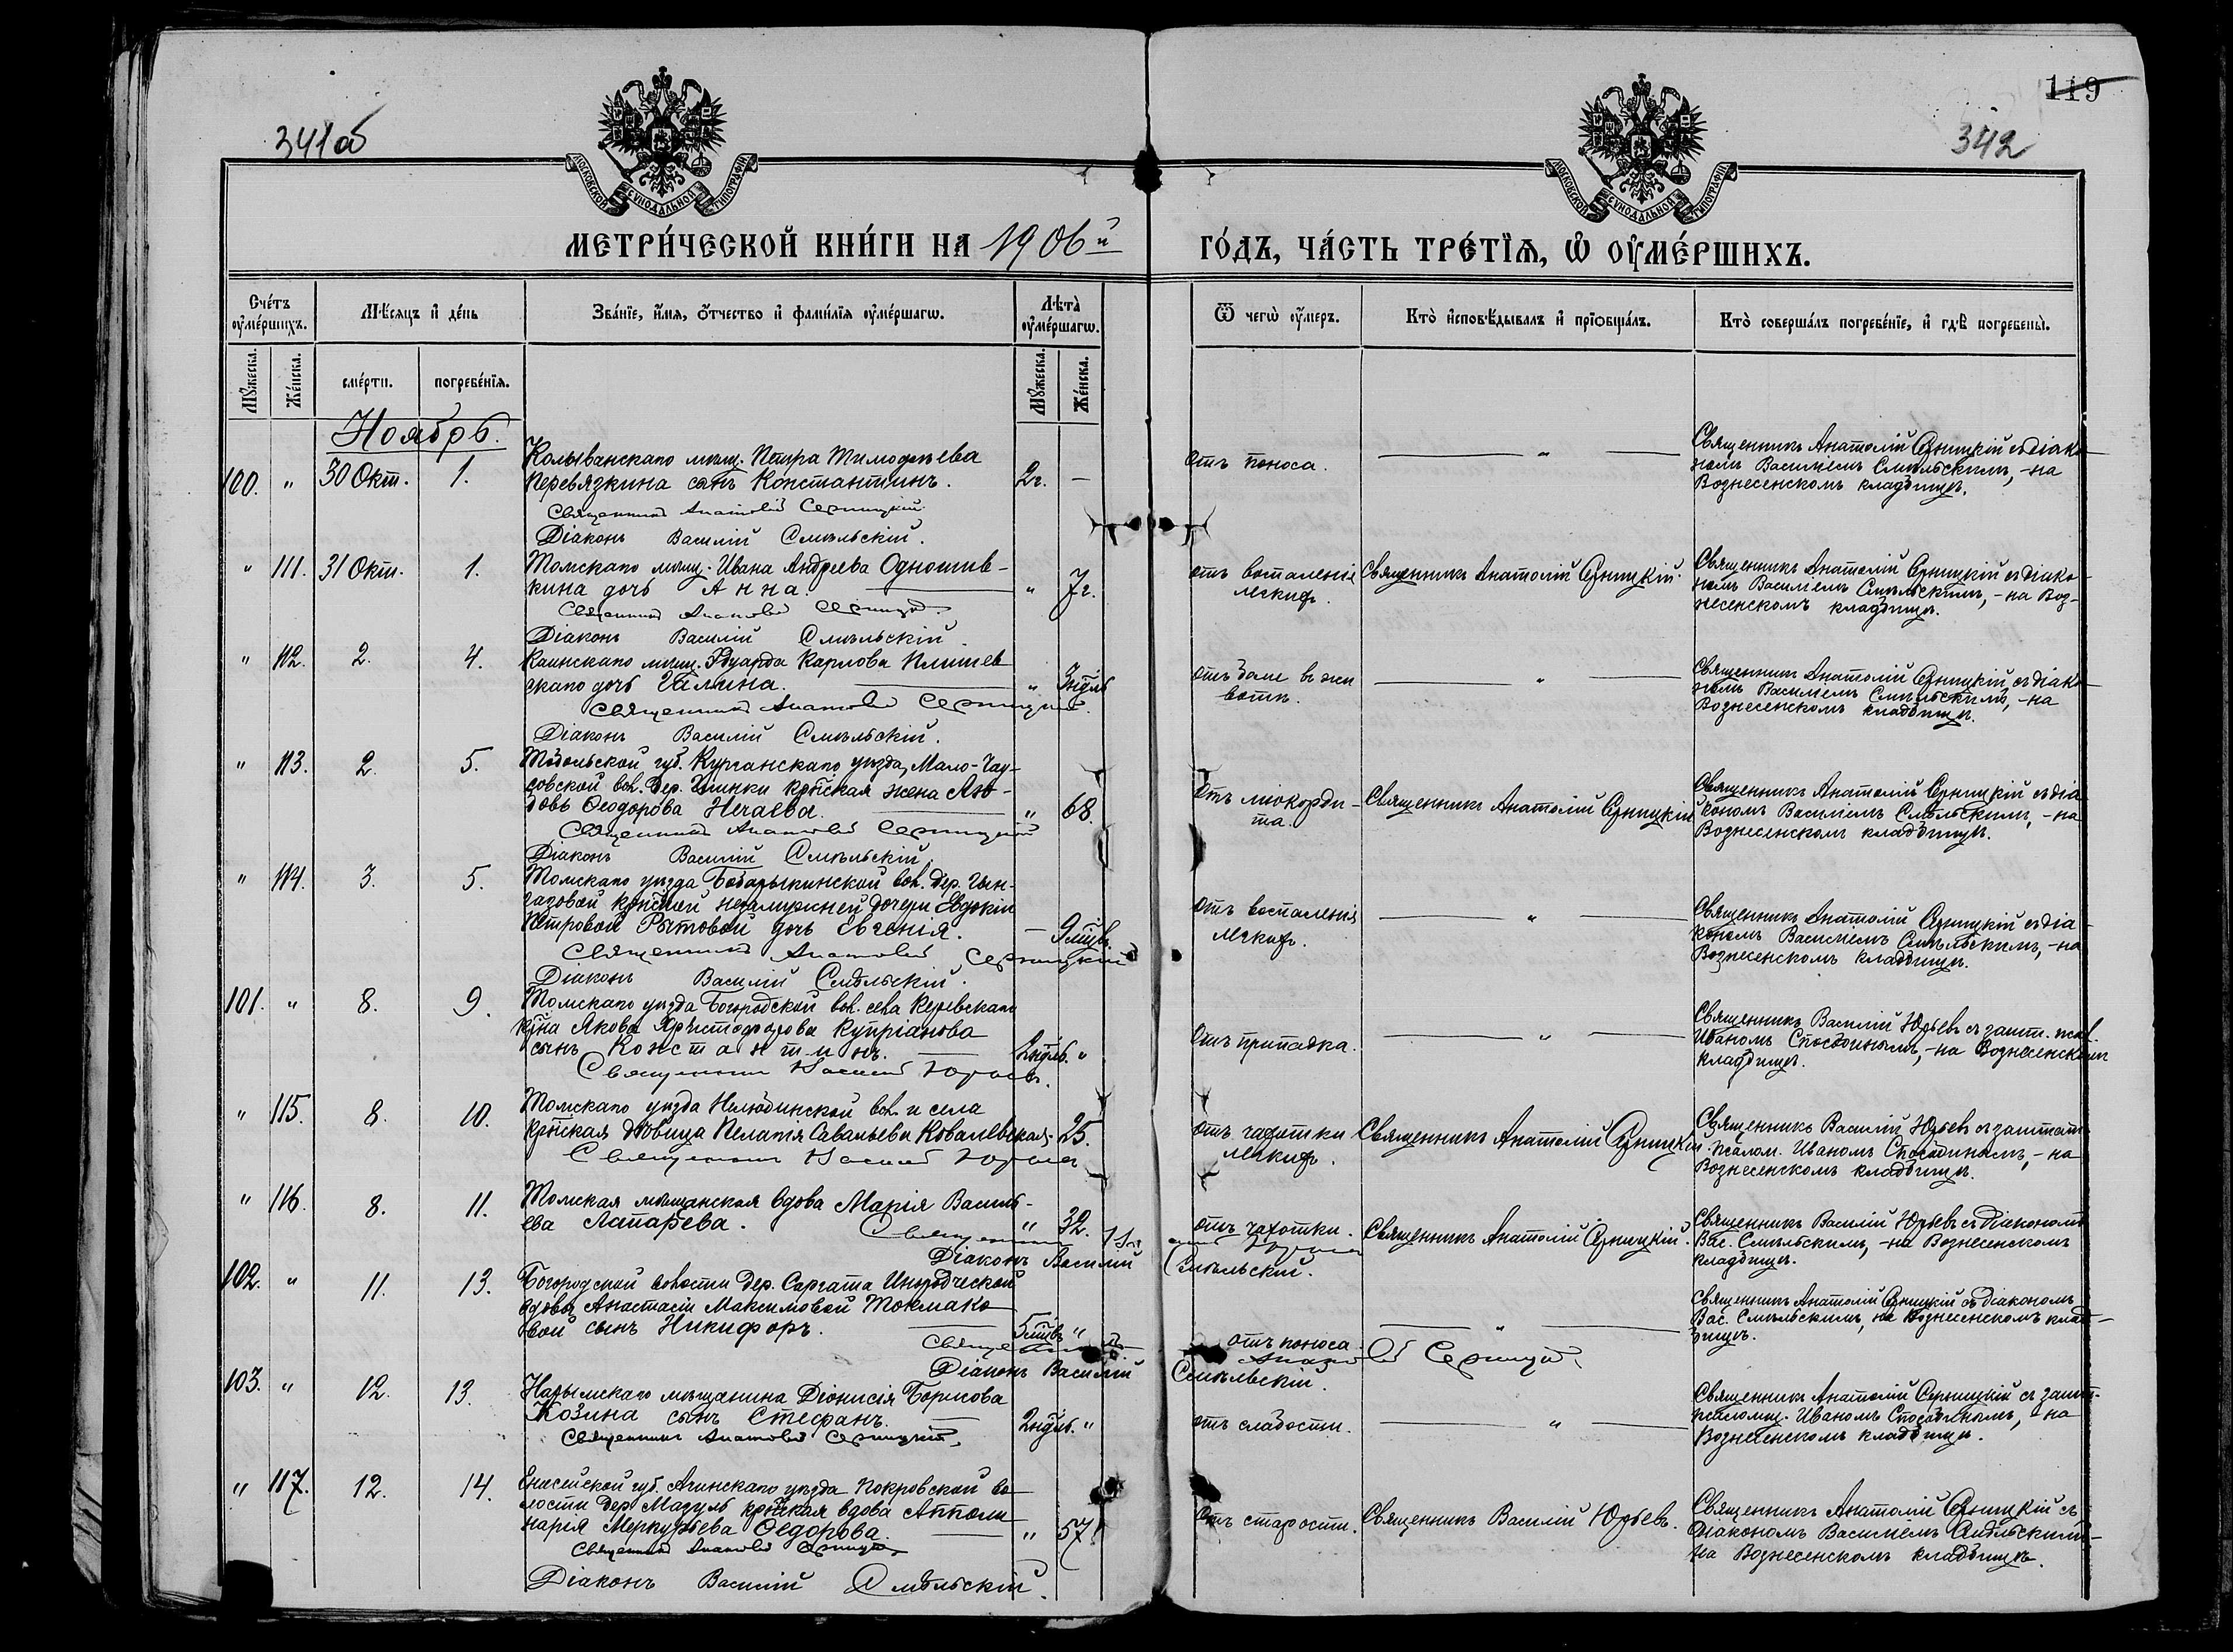 341об
119
342
МОСКОВСКОЙ СѴНОДАЛЬНОЙ ТИПОГРАФІИ
МОСКОВСКОЙ СѴНОДАЛЬНОЙ ТИПОГРАФІИ
МЕТРИ́ЧЕСКОЙ КНИ́ГИ НА 1906й ГО́ДЪ, ЧА́СТЬ ТРЕ́ТЇѦ, Ѡ҆ ОУ҆МЕ́РШИХЪ.
Сче́тъ оу҆ме́ршихъ.
Мѣ́сяцъ и҆ де́нь
Зва́нїе, и҆́мя, ѻ҆́тчество и҆ фами́лїя оу҆ме́ршагѡ.
Лѣта̀ оу҆ме́ршагѡ.
Ѿ чегѡ̀ оу҆́меръ.
Кто̀ и҆сповѣ́дывалъ и҆ прїѡбща́лъ.
Кто̀ соверша́лъ погребе́нїе, и҆ гдѣ̀ погребены̀.
Мꙋ́жеска.
Же́нска.
сме́рти.
погребе́нїя.
Мꙋ́жеска.
Же́нска.
Ноябрь.
100. " 30 Окт. 1.
Колыванскаго мѣщ. Петра Тимофѣева
Перевязкина сынъ Константинъ. 2г. —
Священникъ Анатолій Серницкій
Діаконъ Василій Смѣльскій.
отъ поноса. — " —
Священникъ Анатолій Серницкій съ діако-
номъ Василіемъ Смѣльскимъ, - на
Вознесенскомъ кладбищѣ.
" 111. 31 Окт. 1.
Томскаго мѣщ. Ивана Андреева
кина дочь Анна. " 7г.
Священникъ Анатолій Серницкій
Діаконъ Василій Смѣльскій
отъ воспаленія
легкихъ.
Священникъ Анатолій Серницкій.
Священникъ Анатолій Серницкій съ діако-
номъ Василіемъ Смѣльскимъ, - на Воз-
несенскомъ кладбищѣ.
" 112. 2. 4.
Каинскаго мѣщ. Эдуарда Карлова
скаго дочь Галина. " 3 нѣдль
Священникъ Анатолій Серницкій.
Діаконъ Василій Смѣльскій.
отъ боли въ жи
вотѣ. — " —
Священникъ Анатолій Серницкій съ діако-
номъ Василіемъ Смѣльскимъ, - на
Вознесенскомъ кладбищѣ.
" 113. 2. 5.
Тобольской губ. Курганскаго уѣзда, Мало-Чау-
совской вол. дер. Глинки крѣпская жена Лю-
бовь Ѳеодорова Нечаева. " 68.
Священникъ Анатолій Серницкій
Діаконъ Василій Смѣльскій.
Отъ міокарди-
та.
Священникъ Анатолій Серницкій
Священникъ Анатолій Серницкій съ діа
кономъ Василіемъ Смѣльскимъ, - на
Вознесенскомъ кладбищѣ.
" 114. 3. 5.
Томскаго уѣзда Бобарыкинской вол. дер.
крѣпской незамужней дочери Евдокіи
Петровой Рытовой дочь Евгенія. — 9 мцвъ.
Священникъ Анатолій Серницкій
Діаконъ Василій Смѣльскій.
отъ воспаленія
легкихъ. — " —
Священникъ Анатолій Серницкій съ діа
кономъ Василіемъ Смѣльскимъ, - на
Вознесенскомъ кладбищѣ.
101. " 8. 9.
Томскаго уѣзда Богородской вол. села
крна Якова Христофорова Купріанова
сынъ Константинъ. 2 нѣдль. "
Священникъ Василій Юрьевъ.
Отъ припадка. — " —
Священникъ Василій Юрьевъ съ зашт. псал.
Иваномъ Способинымъ, - на Вознесенском
кладбищѣ.
" 115. 8. 10.
Томскаго уѣзда Нелюбинской вол. и села
крѣпская дѣвица Пелагія Савельева Ковалевская. 25.
Священникъ Василій Юрьевъ
отъ чахотки
легкихъ.
Священникъ Анатолій Серницкій
Священникъ Василій Юрьевъ съ заштат
псалом. Иваномъ Способинымъ, - на
Вознесенскомъ кладбищѣ.
" 116. 8. 11.
Томская мѣщанская вдова Марія Василь-
ева Лапарева. " 32.
Священникъ Василій Юрьевъ
Діаконъ Василій Смѣльскій.
отъ чахотки.
Священникъ Анатолій Серницкій.
Священникъ Василій Юрьевъ съ діакономъ
Вас. Смѣльскимъ, - на Вознесенскомъ
кладбищѣ.
102. " 11. 13.
Богородской волости дер. Саргата Инородческой
вдовы Анастасіи Максимовой Токмако-
вой сынъ Никифоръ. 5 мцвъ "
Священникъ Анатолій Серницкій.
Діаконъ Василій Смѣльскій.
отъ поноса — " —
Священникъ Анатолій Серницкій съ діакономъ
Вас. Смѣльскимъ, на Вознесенскомъ клад-
бищѣ.
103. " 12. 13.
Нарымскаго мѣщанина Діонисія Борисова
Козина сынъ Стефанъ. 2 нѣдль. "
Священникъ Анатолій Серницкій.
отъ слабости. — " —
Священникъ Анатолій Серницкій съ зашт-
псаломщ. Иваномъ Способинымъ, - на
Вознесенскомъ кладбищѣ.
" 117. 12. 14.
Енисейской губ. Ачинскаго уѣзда Покровской во-
лости дер. Мазуль крѣпская вдова Апполи-
нарія Меркурьева Ѳедорова. " 57.
Священникъ Анатолій Серницкій
Діаконъ Василій Смѣльскій.
Отъ старости.
Священникъ Василій Юрьевъ.
Священникъ Анатолій Серницкій съ
діакономъ Василіемъ Смѣльскимъ-
на Вознесенскомъ кладбищѣ.